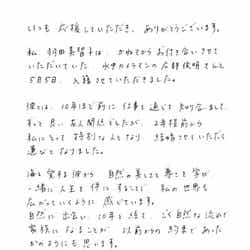 いつも応援していただき、ありがとうございます。
私、羽田美智子は、かねてからお付き合いさせて
いただいていた、水中カメラマンの石野俊明さんと
5月5日、入籍させていただきました。
彼とは、10年ほど前に仕事を通じて知り合いまして、
私て良い友人関係でしたが、2年程前から
私にとって特別な人となり、結婚させていただく
運びとなりました。
海を愛する彼から、自然の美しさ尊さを学び、
一緒に人生を伴にすることで、私の世界も
広がっていくように感じています。
自然に出会い、10年を経て、ごく自然な流れで
家族になることが、以前からの約束であった
かのようにも思います。